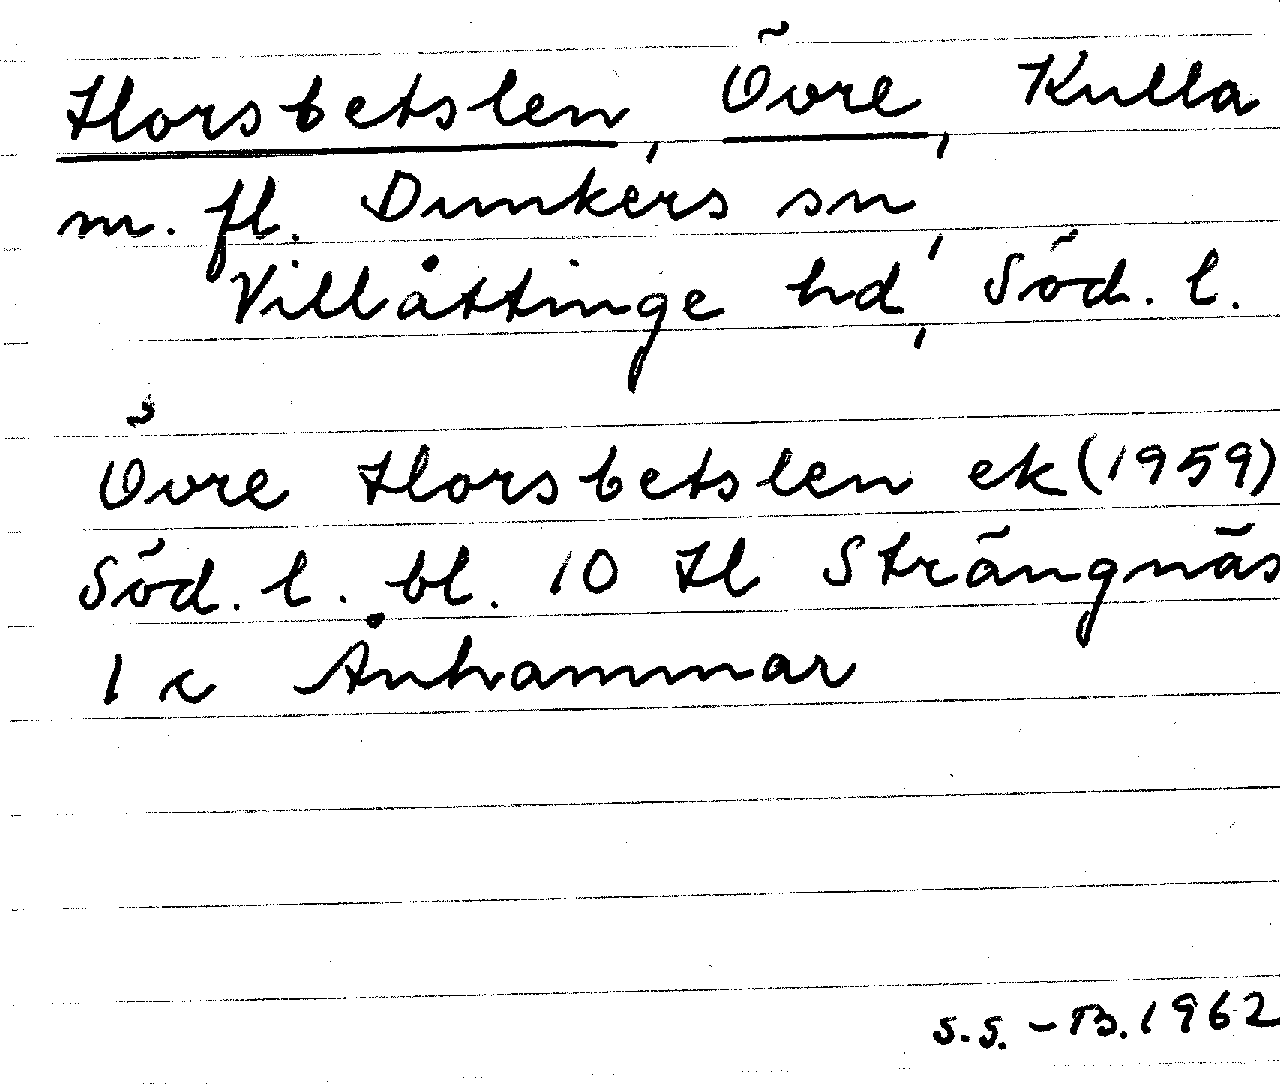 Horsbetslen, Övre, Kulla
m. fl. Dunkers sn,
Villåttinge hd, Söd. l.
Övre Horsbetslen ek (1959)
Söd. l. bl. 10 Hl Strängnäs
1 c Ånhammar
S.S. - B. 1962